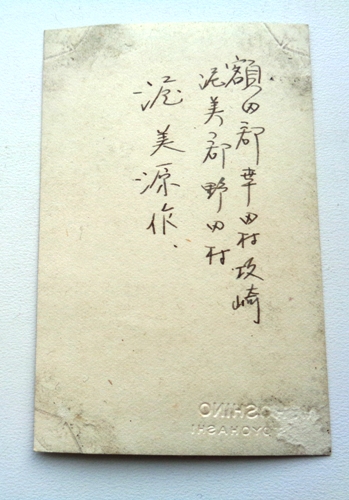 額田郡幸田村坂崎
渥美郡野田村
渥美源作.